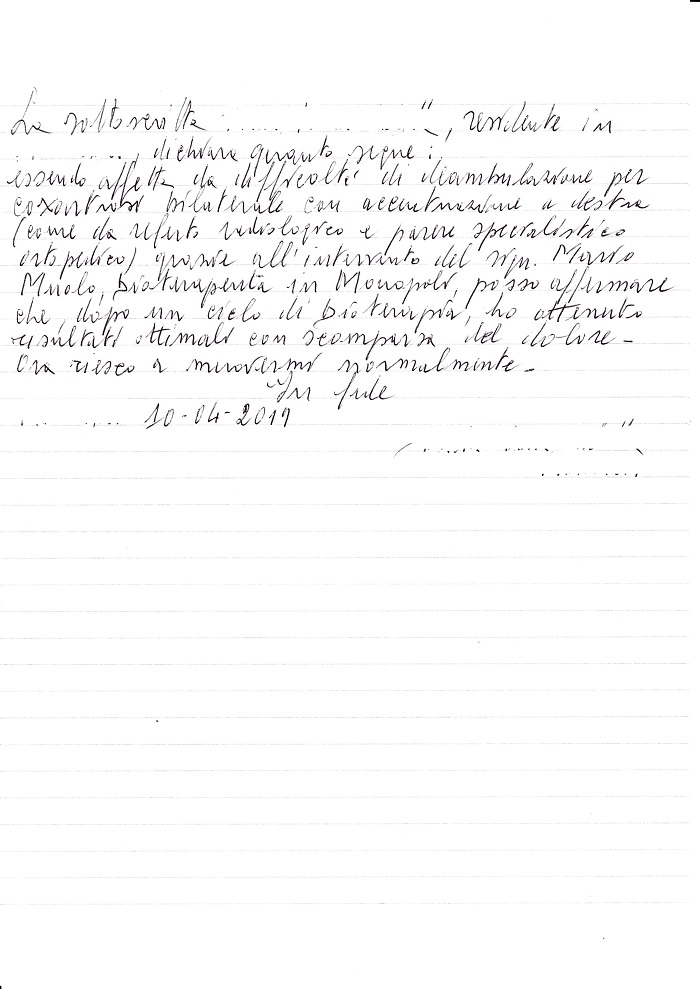 La sottoscritta ..... . ... ... ", residente in
... ......, dichiara quanto segue:
essendo affetta da difficoltà di diambulazione per
coxartrosi bilaterale con accentuazione a destra
(come da referto radiologico e parere specialistico
ortopedico) grazie all'intervento del sign. Mario
Muolo, Bioterapeuta in Monopoli, posso affermare
che, dopo un ciclo di Bioterapia, ho ottenuto
risultati ottimali con scomparsa del dolore -
Ora riesco a muovermi normalmente -
In fede
10-04-2019